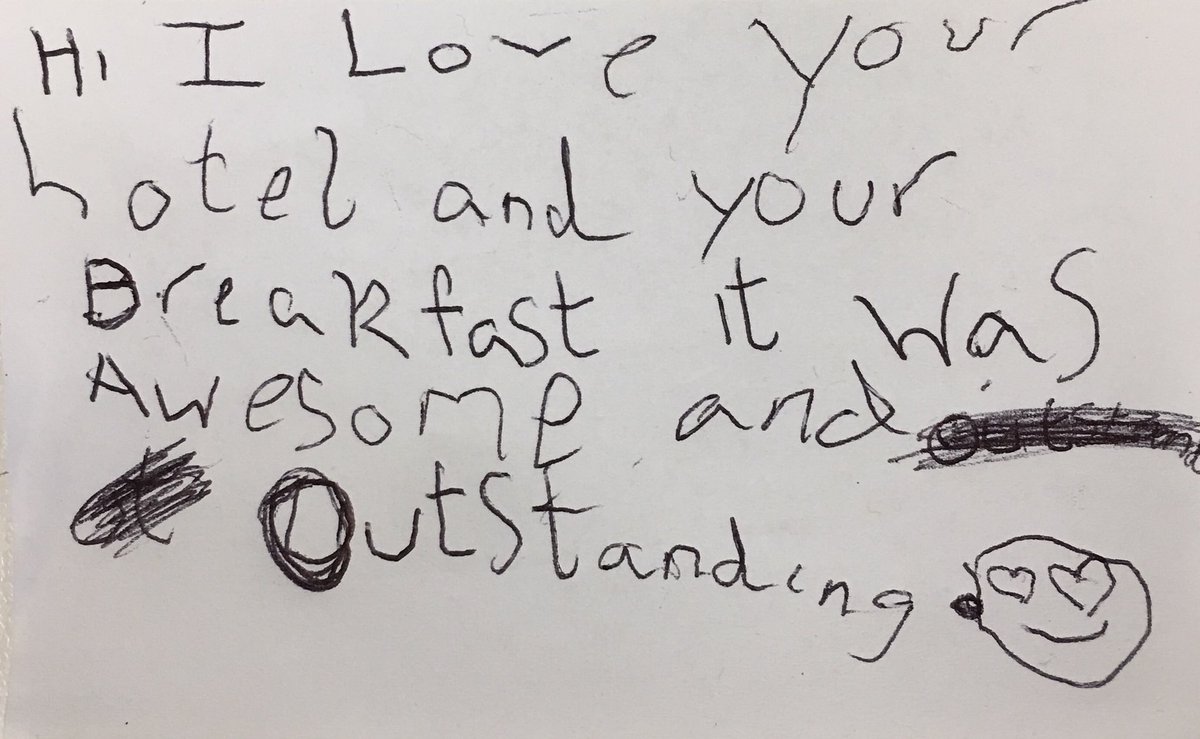 Hi I Love your
hotel and your
Breakfast it was
Awesome and
Outstanding.